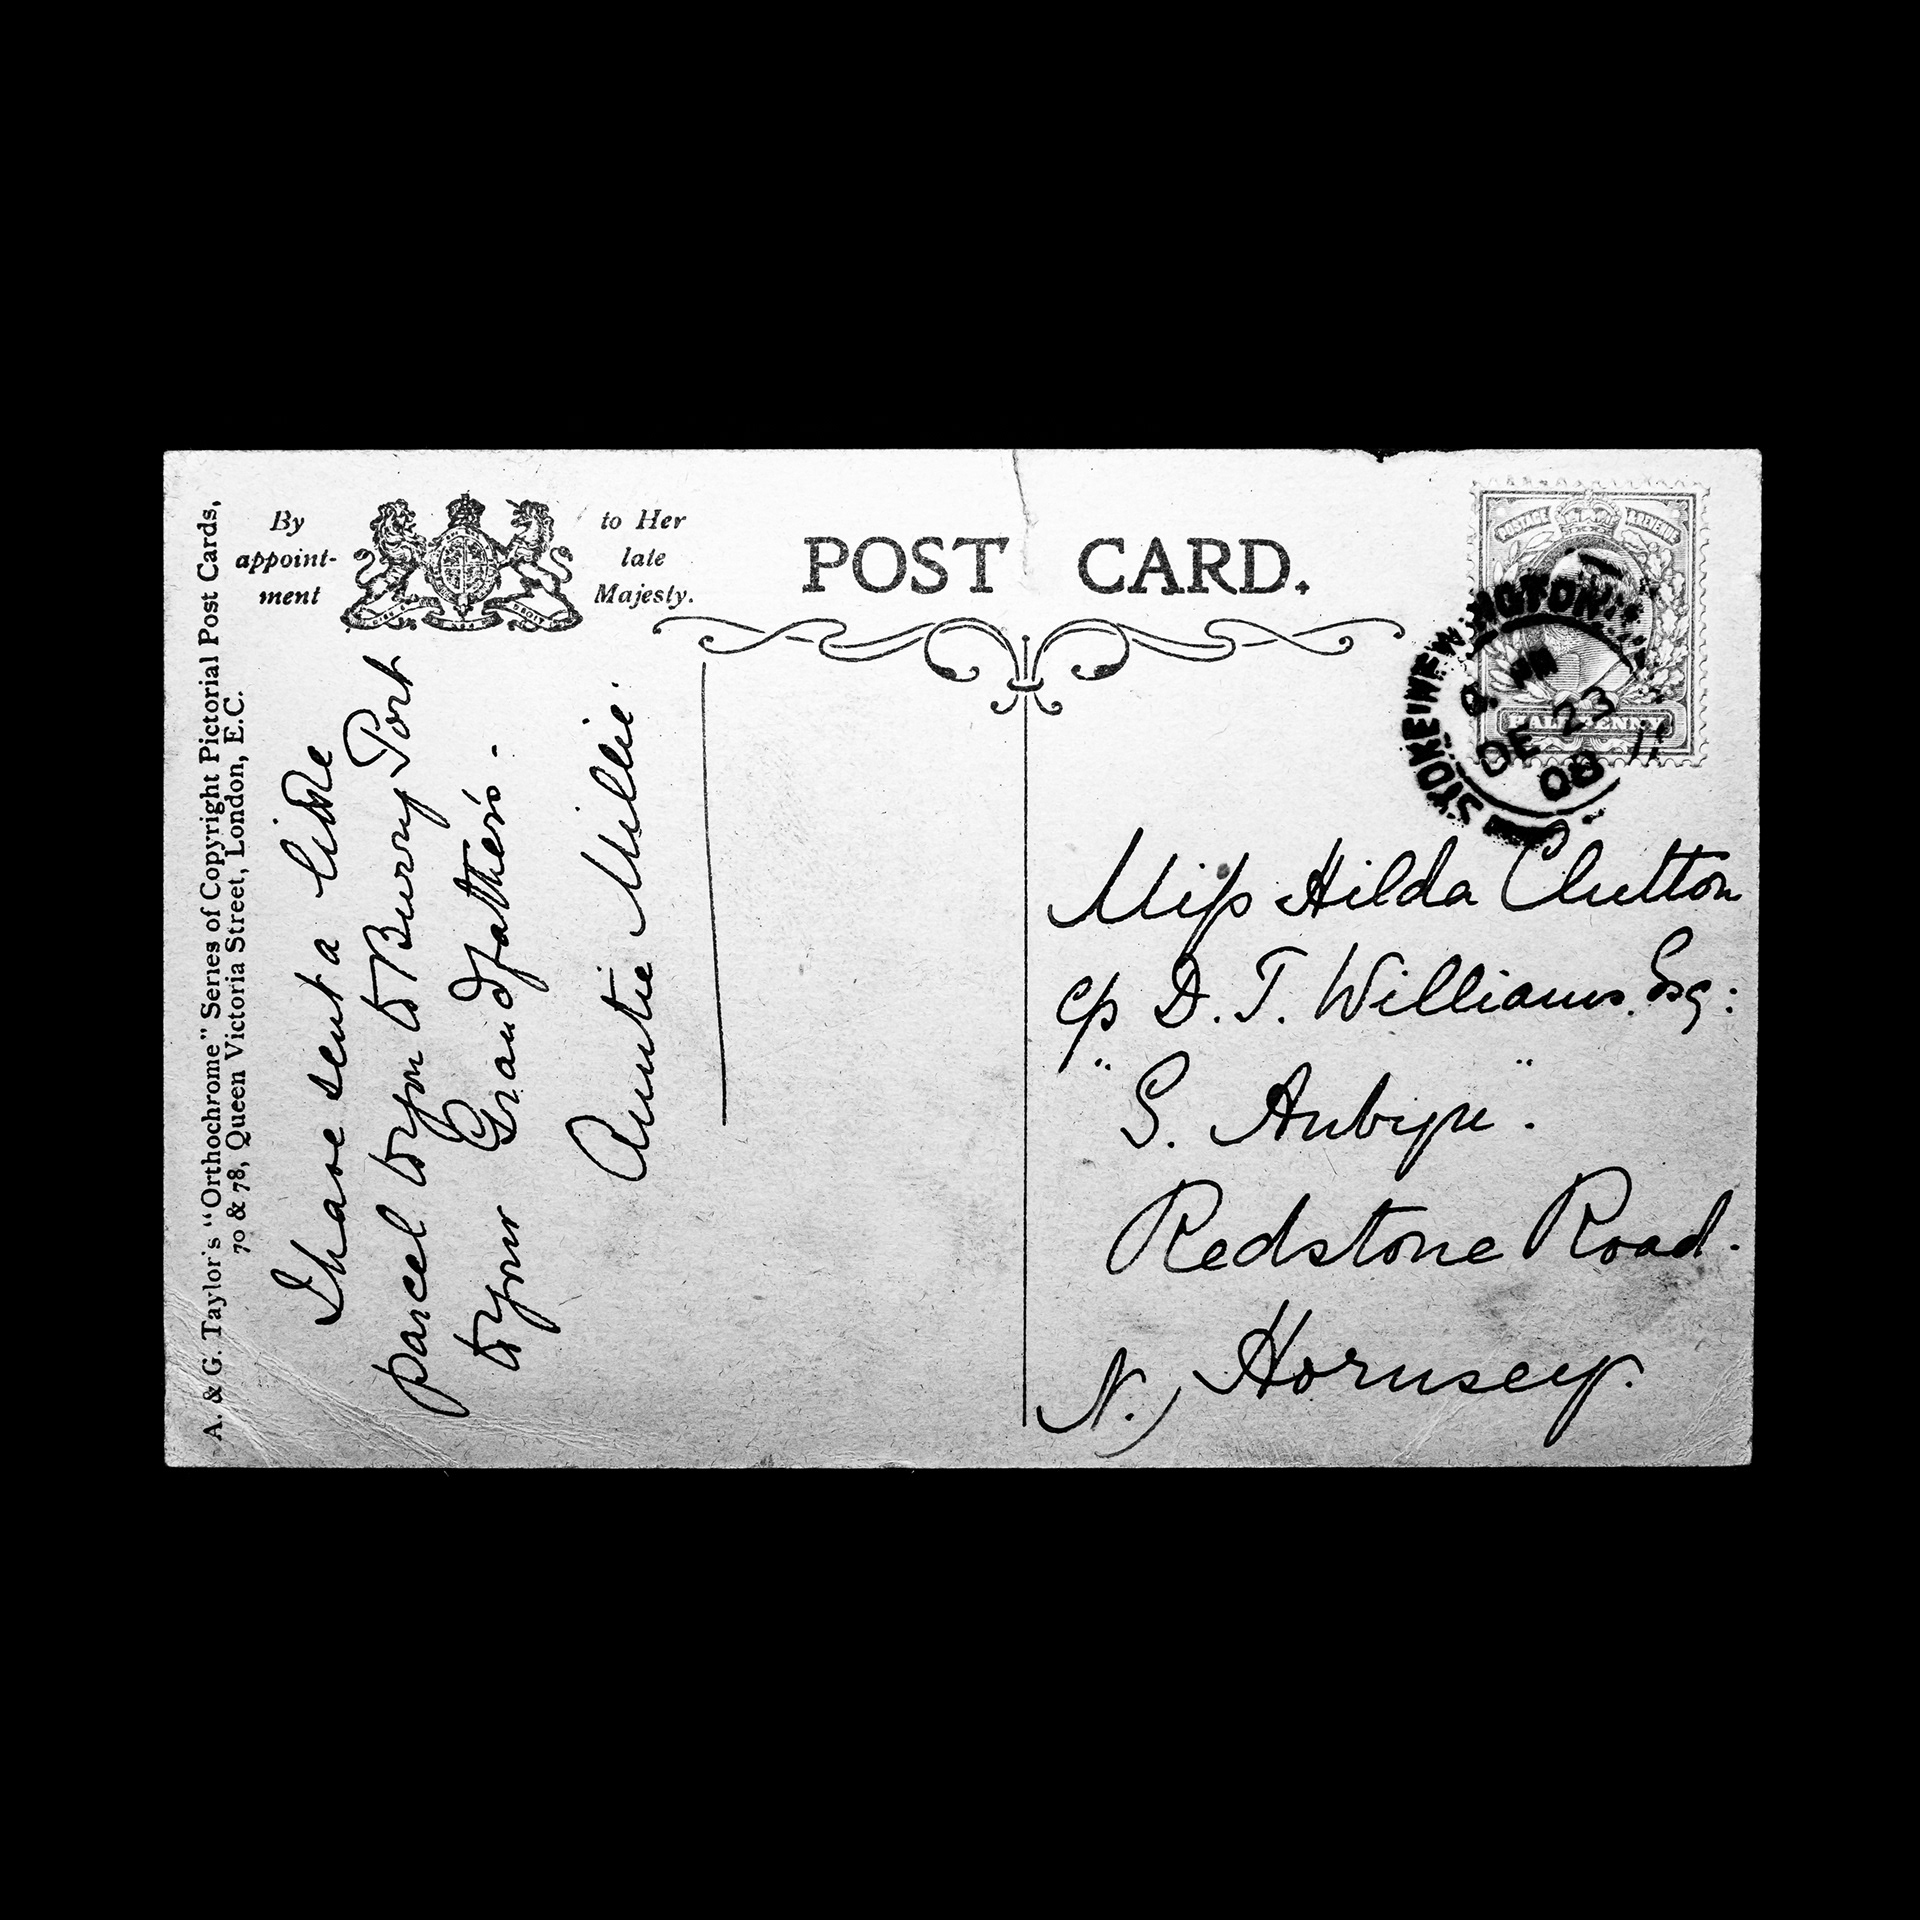 A. & G. Taylor's "Orthochrome" Series of Copyright Pictorial Post Cards,
70 & 78, Queen Victoria Street, London, E.C.
By
appoint-
ment
to Her
late
Majesty.
POST CARD.
POSTAGE & REVENUE
HALFPENNY
STOKE NEWINGTON
DE 23
08
I have sent a little
parcel to you to Burry Port
to your Grandfather's.
Auntie Millie.
Miss Hilda Clutton
c/o D. T. Williams. Esq:
"S. Aubyn".
Redstone Road.
Hornsey.
N.